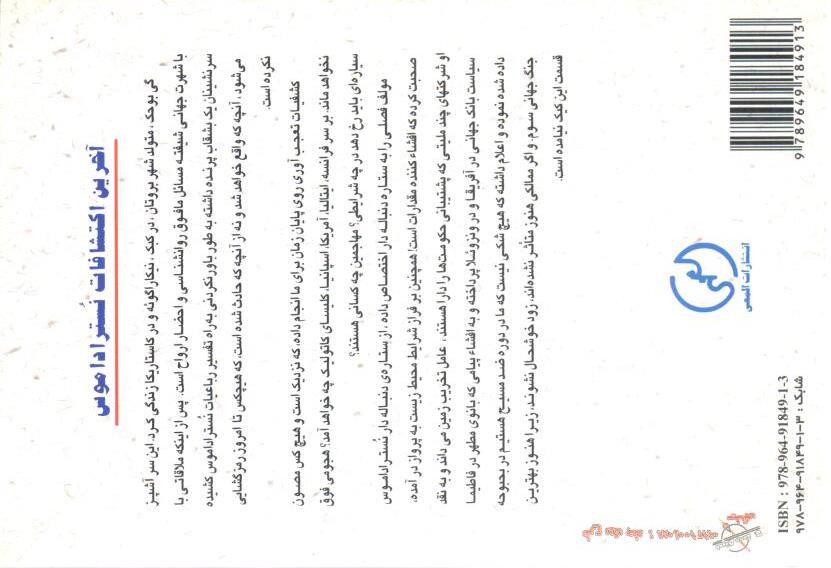 آخرین اکتشافات نُستراداموس
گی بوجک، متولد شهر بروتان، در کبک، نیکاراگوئه و در کاستاریکا زندگی کرد. این سر آشپز
با شهرت جهانی شیفته مسائل مافوق روانشناسی و احضار ارواح است. پس از اینکه ملاقاتی با
سرنشینان یک بشقاب پرنده داشته به طور باورنکردنی به راه تفسیر رباعیات نُستراداموس کشیده
می‌شود، آنچه که واقع خواهد شد و نه از آنچه که حادث شده است، که هیچکس تا امروز رمزگشایی
نکرده است.
کشفیات تعجب آوری روی پایان زمان برای ما انجام داده، که نزدیک است و هیچ کس مصون
نخواهد ماند. بر سر فرانسه، ایتالیا، آمریکا، اسپانیا، کلیسای کاتولیک چه خواهد آمد؟ هجومی فوق
سیاره‌ای باید رخ دهد در چه شرایطی؟ مهاجمین چه کسانی هستند؟
مولف فصلی را به ستاره دنباله دار اختصاص داده، از ستاره‌ی دنباله دار نُستراداموس
صحبت کرده که افشاء کننده مقدارات است! همچنین بر فراز شرایط محیط زیست به پرواز در آمده،
او شرکتهای چند ملیتی که پشتیبانی حکومت‌ها را دارا هستند، عامل تخریب زمین می داند و به نقد
سیاست بانک جهانی در آفریقا و در ونزوئلا پرداخته و به افشاء پیامی که بانوی مطهر در فاطیما
داده شده نموده و اعلام داشته که هیچ شکی نیست که ما در دوره ضد مسیح هستیم در بحبوحه
جنگ جهانی سوم. و اگر ممالکی هنوز متأثر نشده‌اند، زود خوشحال نشوند، زیرا هنوز بهترین
قسمت این کیک نیامده است.
انتشارات المعی
ISBN : 978-964-91849-1-3
شابک : ۳-۱-۹۱۸۴۹-۹۶۴-۹۷۸
9 789649 184913